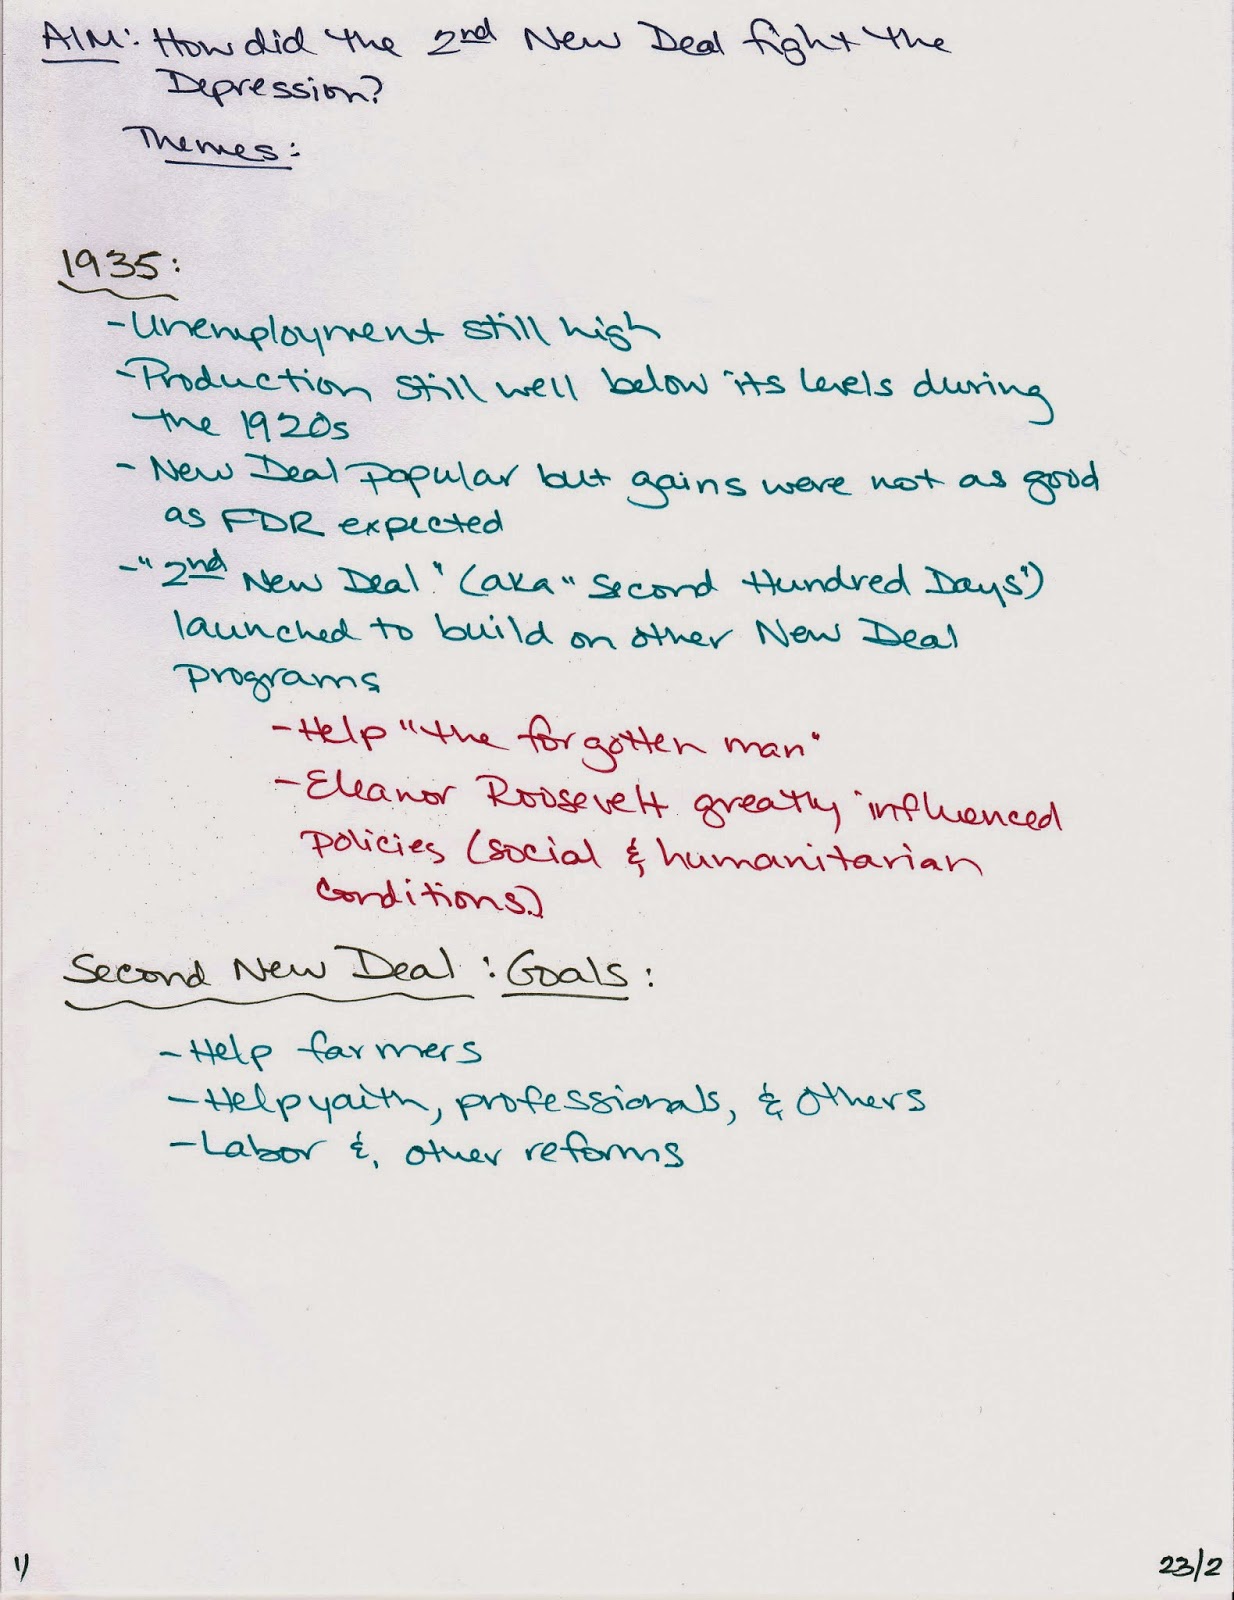 AIM: How did the 2nd New Deal fight the
Depression?
Themes:
1935:
- Unemployment still high
- Production still well below its levels during
the 1920s
- New Deal popular but gains were not as good
as FDR expected
- "2nd New Deal" (aka "Second Hundred Days")
launched to build on other New Deal
programs
- Help "the forgotten man"
- Eleanor Roosevelt greatly influenced
policies (social & humanitarian
conditions)
Second New Deal: Goals:
- Help farmers
- Help youth, professionals, & others
- Labor & other reforms
1/
23/2